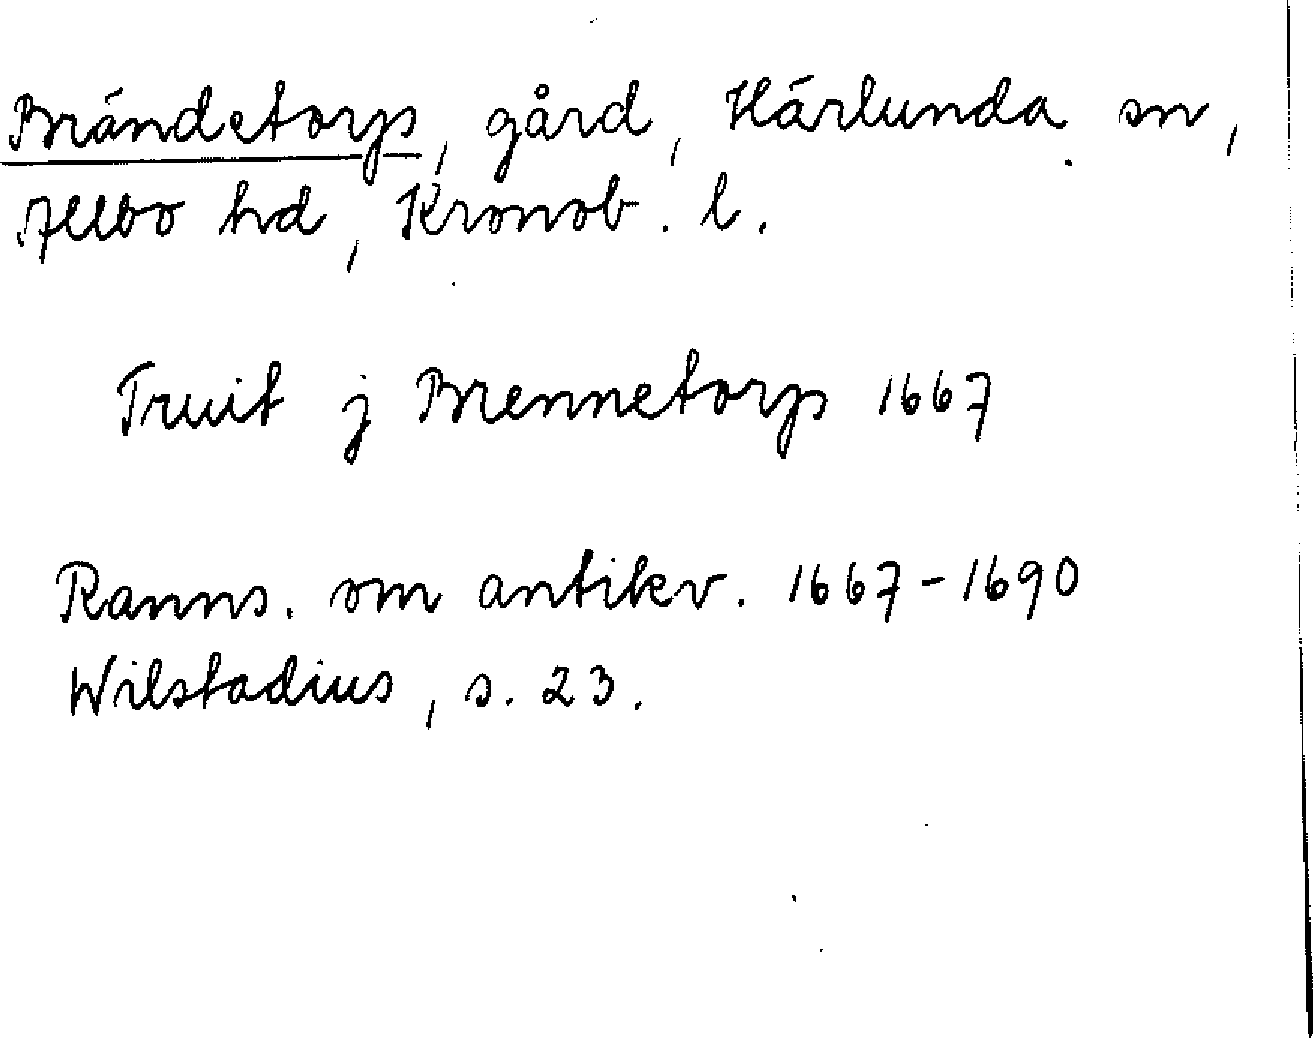 Brändetorp, gård, Härlunda sn,
Allbo hd, Kronob. l.
Truit j Brennetorp 1667
Ranns. om antikv. 1667-1690
Wilstadius, s. 23.